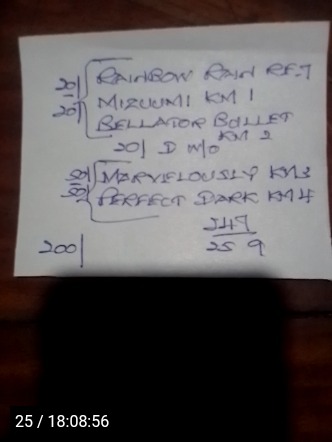 20/ RAINBOW RAIN RF.7
20/ MIZUUMI KM 1
BELLATOR BULLET
KM 2
20/ D M/O
50/ MARVELOUSLY KM3
50/ PERFECT DARK KM4
347
200/ 25 9
25 / 18:08:56